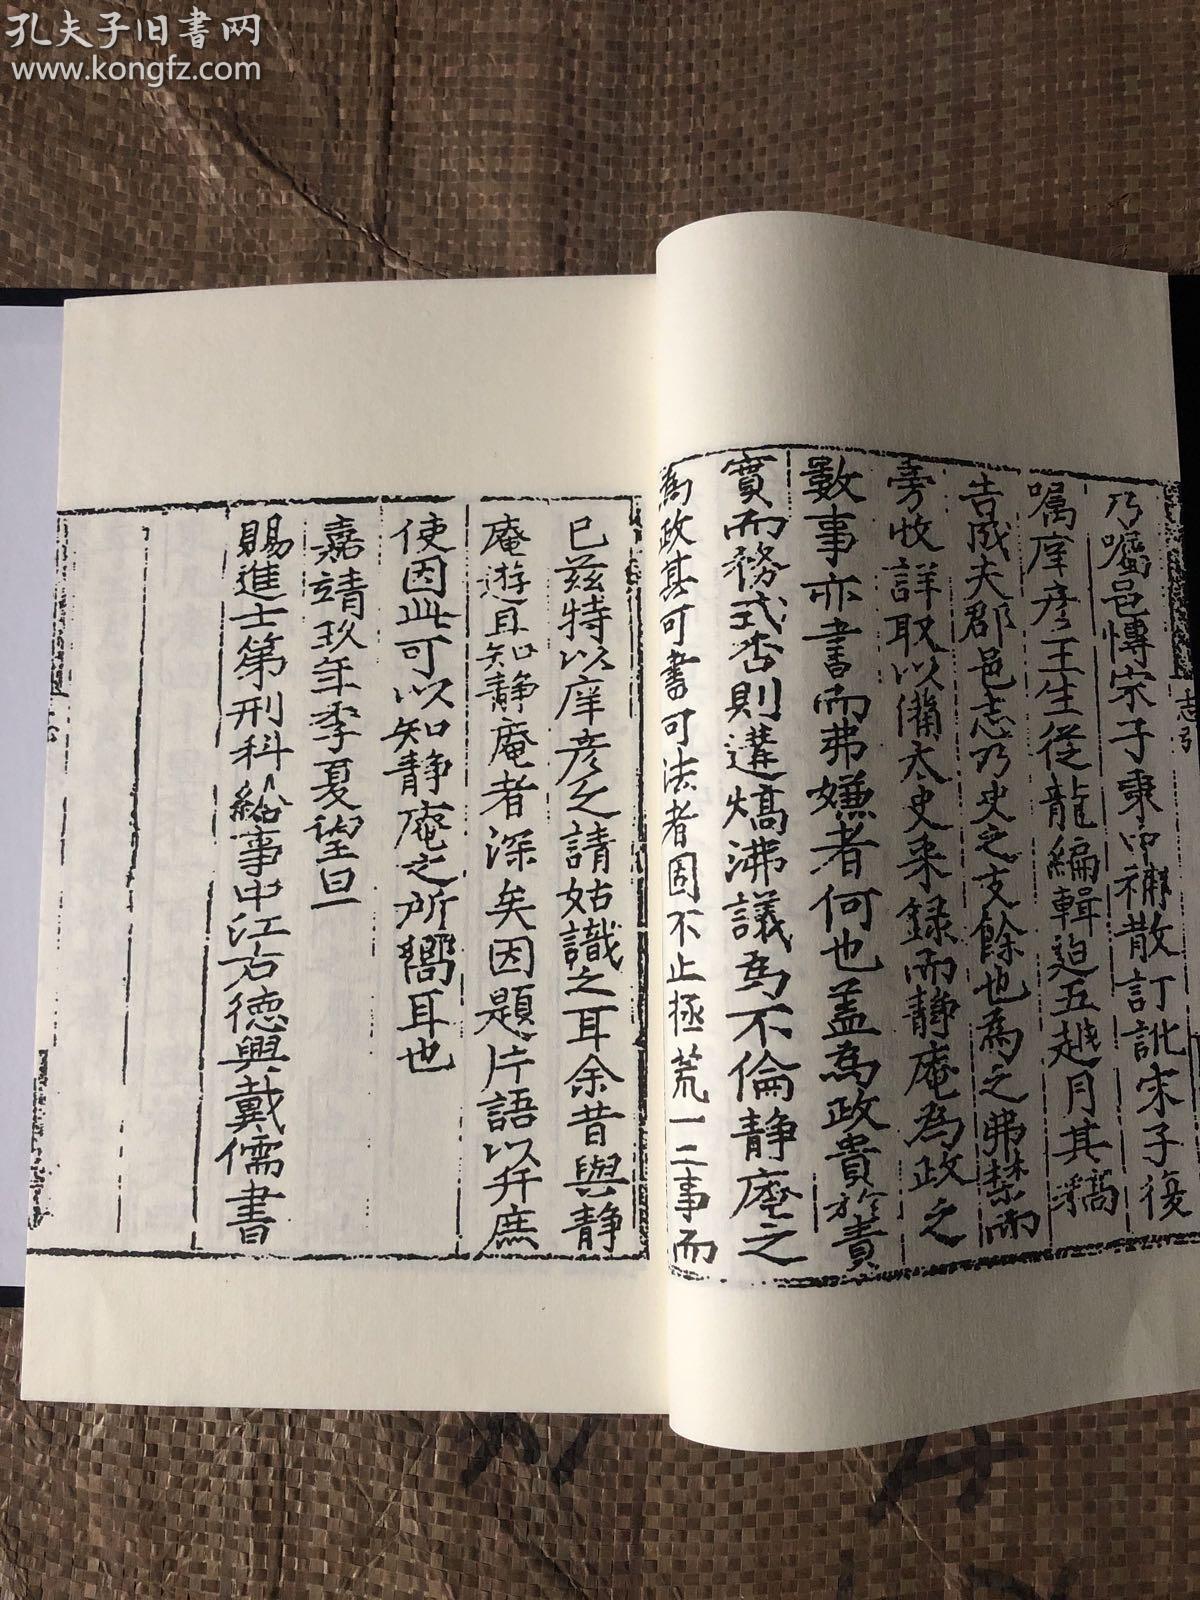 孔夫子旧書网
www.kongfz.com
志引
乃囑邑愽宋子秉中補散訂訛宋子復
嘱庠彦王生從龍編輯迨五越月其稿
告成夫郡邑志乃史之支餘也為之弗禁而
旁收詳取以偹太史采録而静庵為政之
數事亦書而弗嫌者何也盖為政貴於責
實而務式否則遘燆沸議為不倫静庵之
為政甚可書可法者固不止拯荒一二事而
已兹特以庠彦之請姑識之耳余昔與静
庵遊且知靜庵者深矣因題片語以弁庶
使因此可以知静庵之所嚮耳也
嘉靖玖年季夏望旦
賜進士第刑科給事中江右德興戴儒書